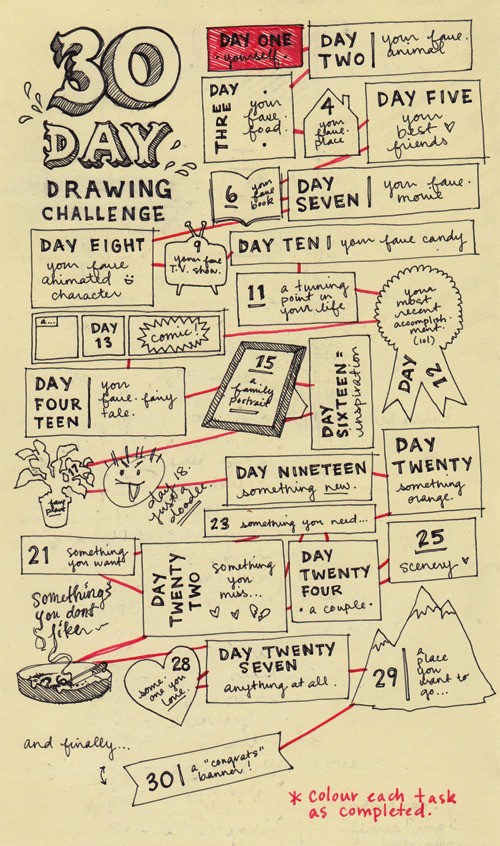 30
DAY
DRAWING
CHALLENGE
DAY ONE
• yourself •
DAY
TWO
your fave.
animal
DAY
THREE
your
fave
food.
4
your
fave.
place
DAY FIVE
your
best
friends
6
your
fave
book
DAY
SEVEN
your fave.
movie
DAY EIGHT
your fave
animated
character
9
your fave
T.V. show.
DAY TEN
your fave candy
11
a turning
point in
your life
your
most
recent
accomplish-
ment.
(lol)
DAY
12
a...
DAY
13
comic!
DAY
FOUR
TEEN
your
fave. fairy
tale.
15
a
family
portrait
DAY
SIXTEEN =
inspiration
fave
plant
day 18
just a
doodle.
DAY NINETEEN
something new.
DAY
TWENTY
something
orange.
21
something
you want
23
something you need...
DAY
TWENTY
TWO
something
you
miss...
DAY
TWENTY
FOUR
• a couple •
25
scenery
something
you dont
like
28
some-
one you
love
DAY TWENTY
SEVEN
anything at all.
29
a
place
you
want to
go...
and finally...
30
a "congrats"
banner!
* Colour each task
as completed.